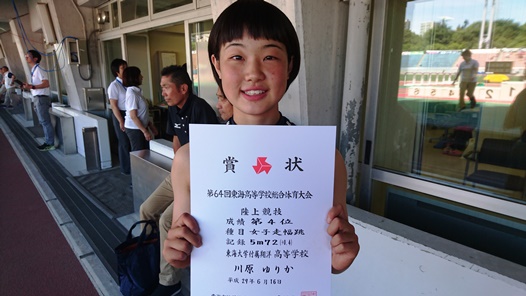 賞 状
第64回東海高等学校総合体育大会
陸上競技
成績 第4位
種目 女子走幅跳
記録 5m72(+1.4)
東海大学付属翔洋高等学校
川原 ゆりか
平成29年6月16日